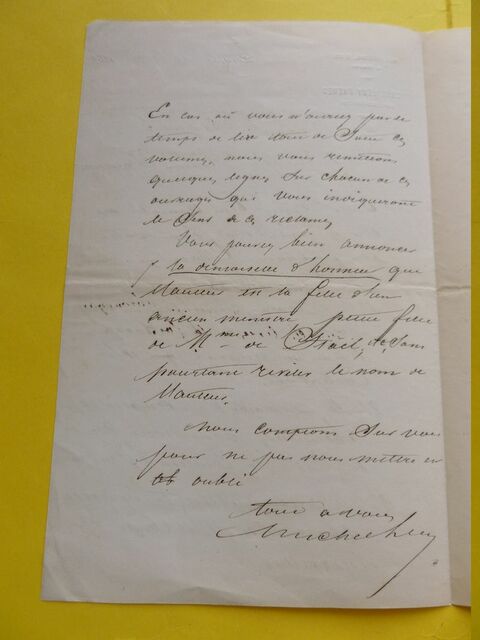 En cas où vous n'auriez pas le
temps de lire tout de Suite ces
volumes, nous vous remettrons
quelques lignes Sur chacun de ces
ouvrages qui vous indiqueront
le Sens de ces réclames
Vous pouvez bien annoncer
p la demoiselle d'honneur que
l'auteur est la fille d'un
ancien ministre petite fille
de Mme de Staël, de Sans
pourtant risquer le nom de
l'auteur.
Nous comptons Sur vous
pour ne pas nous mettre en
oubli
tout a vous
Michel Lévy